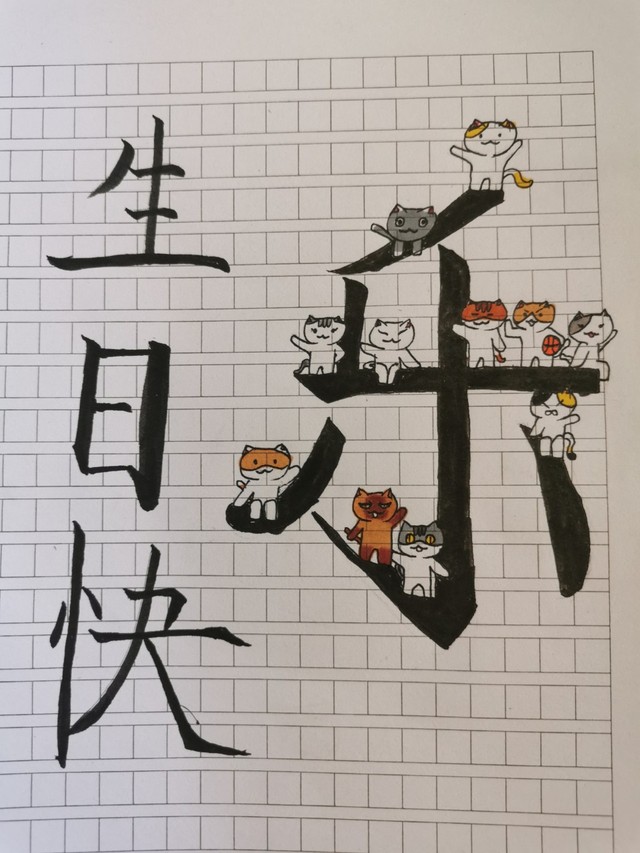 生日快
乐